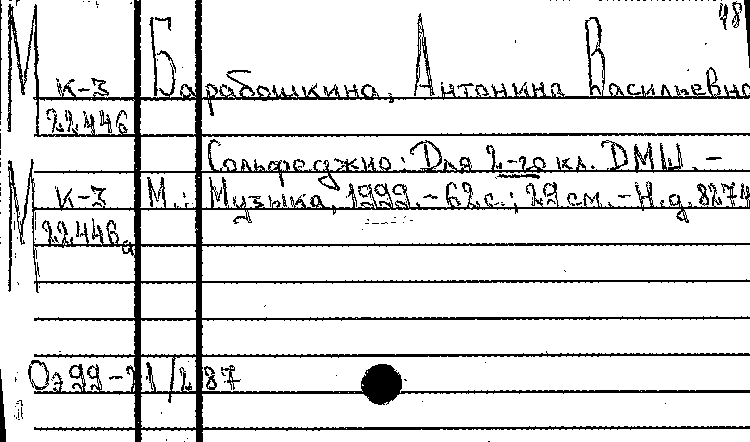 48
М к-3 Барабошкина, Антонина Васильевна
22446
Сольфеджио: Для 2-го кл. ДМШ. –
М к-3 М.: Музыка, 1999. – 62 с.; 29 см. – Н.д. 8274
22446а
Оэ 99-21/287